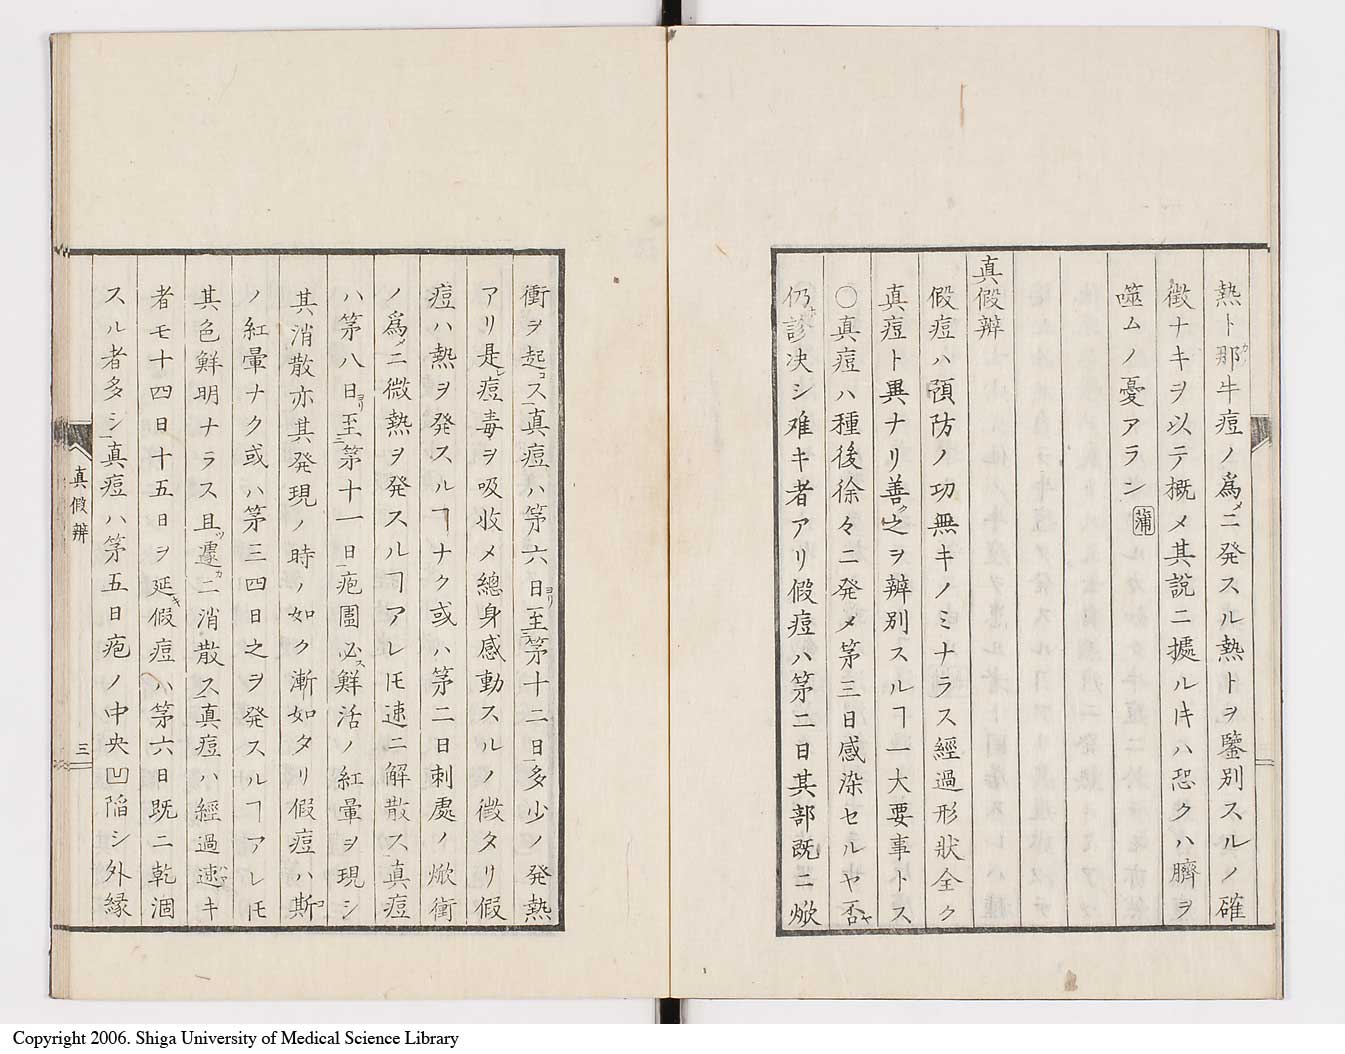 熱ト那牛痘ノ爲メニ発スル熱トヲ鑒別スルノ確
徴ナキヲ以テ概メ其説ニ據ルキハ恐クハ臍ヲ
噬ムノ憂アラン 蒲
真假辨
假痘ハ預防ノ功無キノミナラス經過形狀全ク
真痘ト異ナリ善ク之ヲ辨別スルヿ一大要事トス
〇真痘ハ種後徐々ニ発メ第三日感染セルヤ否ヤ
仍ホ診決シ难キ者アリ假痘ハ第二日其部既ニ焮
衝ヲ起コス真痘ハ第六日ヨリ至ニ第十二日多少ノ発熱
アリ是レ痘毒ヲ吸收メ總身感動スルノ徴タリ假
痘ハ熱ヲ発スルヿナク或ハ第二日刺處ノ焮衝
ノ爲メニ微熱ヲ発スルヿアレㇳモ速ニ解散ス真痘
ハ第八日ヨリ至ニ第十一日疱圍必ス鮮活ノ紅暈ヲ現シ
其消散亦其発現ノ時ノ如ク漸如タリ假痘ハ斯
ノ紅暈ナク或ハ第三四日之ヲ発スルヿアレㇳモ
其色鮮明ナラス且ツ遽カニ消散ス真痘ハ經過速キ
者モ十四日十五日ヲ延キ假痘ハ第六日既ニ乾涸
スル者多シ真痘ハ第五日疱ノ中央凹陷シ外縁
真假辨
三
Copyright 2006. Shiga University of Medical Science Library